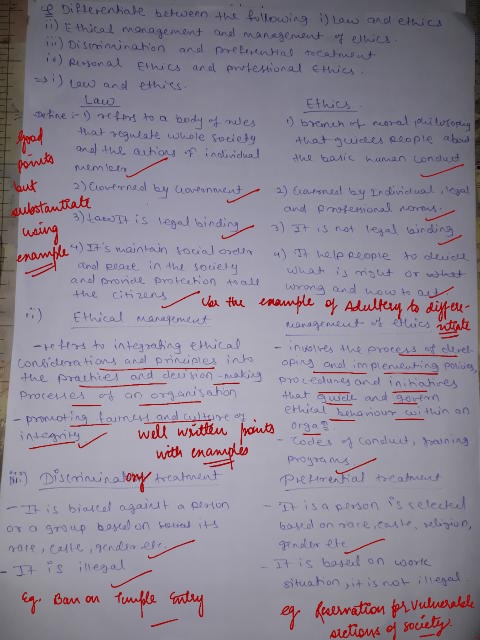 Q Differentiate between the following i) Law and ethics
ii) Ethical management and management of ethics.
iii) Discrimination and preferential treatment
iv) Personal Ethics and professional Ethics.
⇒ i) Law and ethics.
Law
Define :- 1) refers to a body of rules
that regulate whole society
and the actions of individual
member
2) Governed by Government
3) Law It is legal binding
4) It's maintain social order
and peace in the society
and provide protection to all
the citizens
Ethics.
1) branch of moral philosophy
that guides people about
the basic human conduct
2) Governed by Individual, legal
and professional norms.
3) It is not legal binding
4) It help people to decide
what is right or what
wrong and how to act
Good
points
but
substantiate
using
example
Use the example of Adultery to differentiate
ii) Ethical management
- refers to integrating ethical
considerations and principles into
the practices and decision-making
processes of an organisation
- promoting fairness and culture of
integrity
management of ethics
- involves the process of devel-
oping and implementing policies,
procedures and initiatives
that guide and govern
ethical behaviour within an
orga
- Codes of conduct, training
programs
well written points
with examples
iii) Discriminatory treatment
- It is biased against a person
or a group based on its
race, caste, gender etc.
- It is illegal
Eg. Ban on Temple Entry
Preferential treatment
- It is a person is selected
based on race, caste, religion,
gender etc
- It is based on work
situation, it is not illegal.
eg Reservation for vulnerable
sections of society.